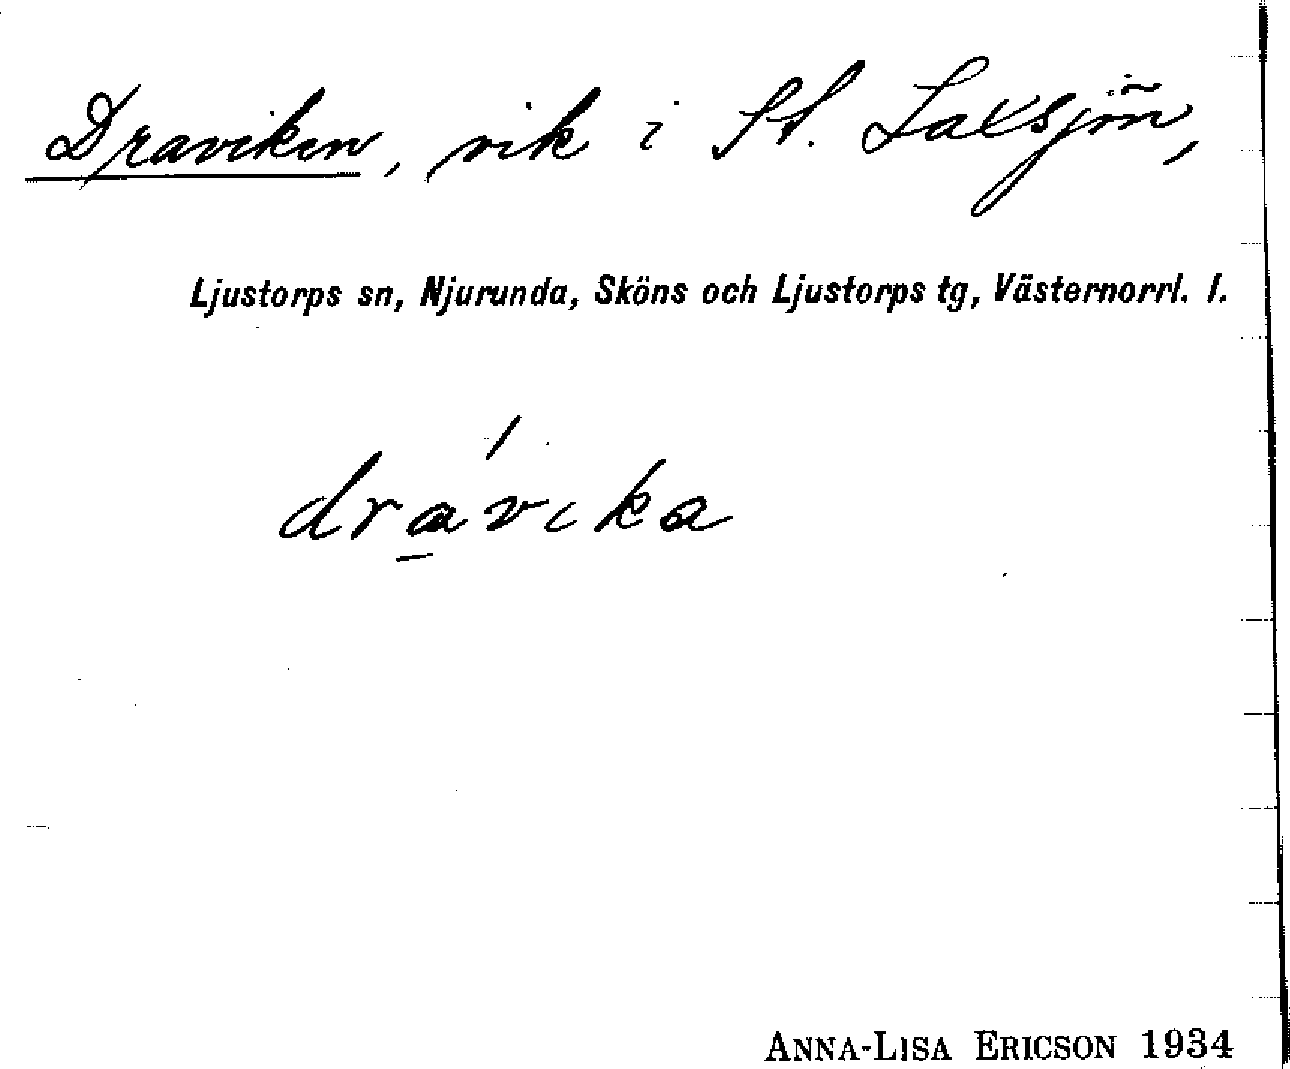 Draviken, vik i St. Laxsjön,
Ljustorps sn, Njurunda, Sköns och Ljustorps tg, Västernorrl. l.
dra̲´vika
ANNA-LISA ERICSON 1934